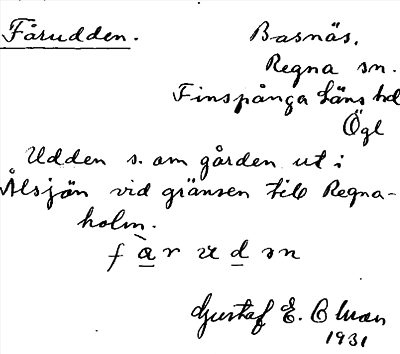 Fårudden.
Basnäs,
Regna sn.
Finspånga läns hd
Ögl
Udden s. om gården ut i
Ålsjön vid gränsen till Regna-
holm.
fàrudṇ
Gustaf E.
1931